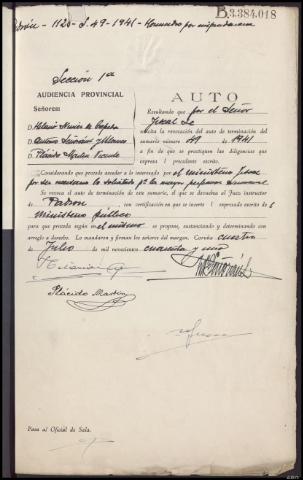 B.3.384.018
Padrón - 1128 - S. 49 - 1941 - Homicidio por imprudencia
Sección 1ª
AUDIENCIA PROVINCIAL
AUTO
Señores
Resultando que por el Señor
Fiscal se
D. Hilario Núñez de
solicita la revocación del auto de terminación del
D. Antonio
sumario número 49 de 1941
D. Plácido Martín
a fin de que se practiquen las diligencias que
expresa el precedente escrito.
Considerando que procede acceder a lo interesado por el ministerio fiscal
por ser necesario lo solicitado pª la mayor perfección sumarial
Se revoca el auto de terminación de este sumario, el que se devuelva al Juez instructor
de Padrón, con certificación en que se inserte el expresado escrito del
Ministerio público
para que proceda según en el mismo se propone, sustanciando y determinando con
arreglo a derecho. Lo mandaron y firman los señores del margen. Coruña cuatro
de Julio de mil novecientos cuarenta y uno
Plácido Martín
Pasa al Oficial de Sala.